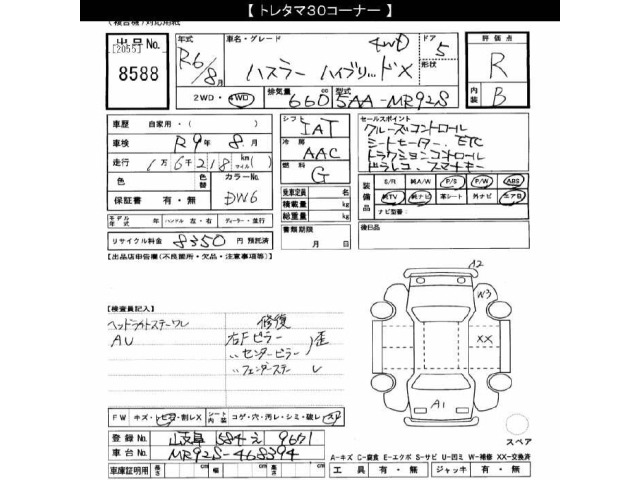 【 トレタマ30コーナー 】
(複合機)対応用紙
出品No.
[2055]
8588
年式
R6/8月
車名・グレード
ハスラー ハイブリッドX
4WD
ドア
5
形状
評価点
R
内装
B
2WD・4WD
排気量
660
cc
型式
5AA-MR92S
車歴 自家用・( )
車検 R9年 8月
走行 1万6千218km(マイル)
色
色替
カラーNo.
DW6
保証書 有・無
モデル年式 年 ハンドル 左・右 ディーラー・並行
リサイクル料金 8350 円 預託済
シフト
IAT
冷房
AAC
燃料
G
乗車定員 名
積載量 kg
総重量 kg
書類期限
月 日
セールスポイント
クルーズコントロール
シートヒーター、ETC
トラクションコントロール
ドラレコ、スマートキー
装備品
S/R 純A/W P/S P/W ABS
純TV 純ナビ 革シート 外ナビ エアB
ナビ型番:
後日品
【出品店申告欄(不良箇所・欠品・注意事項等)】
【検査員記入】
ヘッドライトステーワレ
AU
修復
右Fピラー
〃センターピラー
歪
〃フェンダーステー
A2
W3
XX
A1
スペア
FW キズ・トビ石・割レX
シート内装 コゲ・穴・汚レ・シミ・破レ・スレ
登録No. 岐阜 584 え 9671
車台No. MR92S-468394
車庫証明用 長さ cm 幅 cm 高さ cm
A-キズ C-腐食 E-エクボ S-サビ U-凹ミ W-補修 XX-交換済
工具 有・無 ジャッキ 有・無